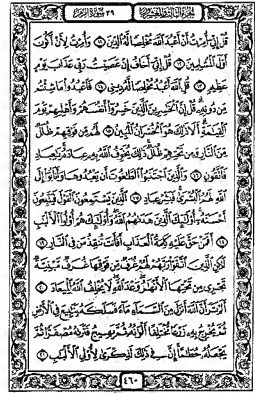 الجزء الثالث والعشرون ٣٩ سورة الزمر
قُلْ إِنِّىٓ أُمِرْتُ أَنْ أَعْبُدَ ٱللَّهَ مُخْلِصًا لَّهُ ٱلدِّينَ ١١ وَأُمِرْتُ لِأَنْ أَكُونَ
أَوَّلَ ٱلْمُسْلِمِينَ ١٢ قُلْ إِنِّىٓ أَخَافُ إِنْ عَصَيْتُ رَبِّى عَذَابَ يَوْمٍ
عَظِيمٍ ١٣ قُلِ ٱللَّهَ أَعْبُدُ مُخْلِصًا لَّهُۥ دِينِى ١٤ فَٱعْبُدُوا۟ مَا شِئْتُم
مِّن دُونِهِۦ قُلْ إِنَّ ٱلْخَـٰسِرِينَ ٱلَّذِينَ خَسِرُوٓا۟ أَنفُسَهُمْ وَأَهْلِيهِمْ يَوْمَ
ٱلْقِيَـٰمَةِ أَلَا ذَٰلِكَ هُوَ ٱلْخُسْرَانُ ٱلْمُبِينُ ١٥ لَهُم مِّن فَوْقِهِمْ ظُلَلٌ
مِّنَ ٱلنَّارِ وَمِن تَحْتِهِمْ ظُلَلٌ ذَٰلِكَ يُخَوِّفُ ٱللَّهُ بِهِۦ عِبَادَهُۥ يَـٰعِبَادِ
فَٱتَّقُونِ ١٦ وَٱلَّذِينَ ٱجْتَنَبُوا۟ ٱلطَّـٰغُوتَ أَن يَعْبُدُوهَا وَأَنَابُوٓا۟ إِلَى
ٱللَّهِ لَهُمُ ٱلْبُشْرَىٰ فَبَشِّرْ عِبَادِ ١٧ ٱلَّذِينَ يَسْتَمِعُونَ ٱلْقَوْلَ فَيَتَّبِعُونَ
أَحْسَنَهُۥٓ أُو۟لَـٰٓئِكَ ٱلَّذِينَ هَدَىٰهُمُ ٱللَّهُ وَأُو۟لَـٰٓئِكَ هُمْ أُو۟لُوا۟ ٱلْأَلْبَـٰبِ
١٨ أَفَمَنْ حَقَّ عَلَيْهِ كَلِمَةُ ٱلْعَذَابِ أَفَأَنتَ تُنقِذُ مَن فِى ٱلنَّارِ ١٩
لَـٰكِنِ ٱلَّذِينَ ٱتَّقَوْا۟ رَبَّهُمْ لَهُمْ غُرَفٌ مِّن فَوْقِهَا غُرَفٌ مَّبْنِيَّةٌ
تَجْرِى مِن تَحْتِهَا ٱلْأَنْهَـٰرُ وَعْدَ ٱللَّهِ لَا يُخْلِفُ ٱللَّهُ ٱلْمِيعَادَ ٢٠
أَلَمْ تَرَ أَنَّ ٱللَّهَ أَنزَلَ مِنَ ٱلسَّمَآءِ مَآءً فَسَلَكَهُۥ يَنَـٰبِيعَ فِى ٱلْأَرْضِ
ثُمَّ يُخْرِجُ بِهِۦ زَرْعًا مُّخْتَلِفًا أَلْوَٰنُهُۥ ثُمَّ يَهِيجُ فَتَرَىٰهُ مُصْفَرًّا ثُمَّ
يَجْعَلُهُۥ حُطَـٰمًا إِنَّ فِى ذَٰلِكَ لَذِكْرَىٰ لِأُو۟لِى ٱلْأَلْبَـٰبِ ٢١
٤٦٠